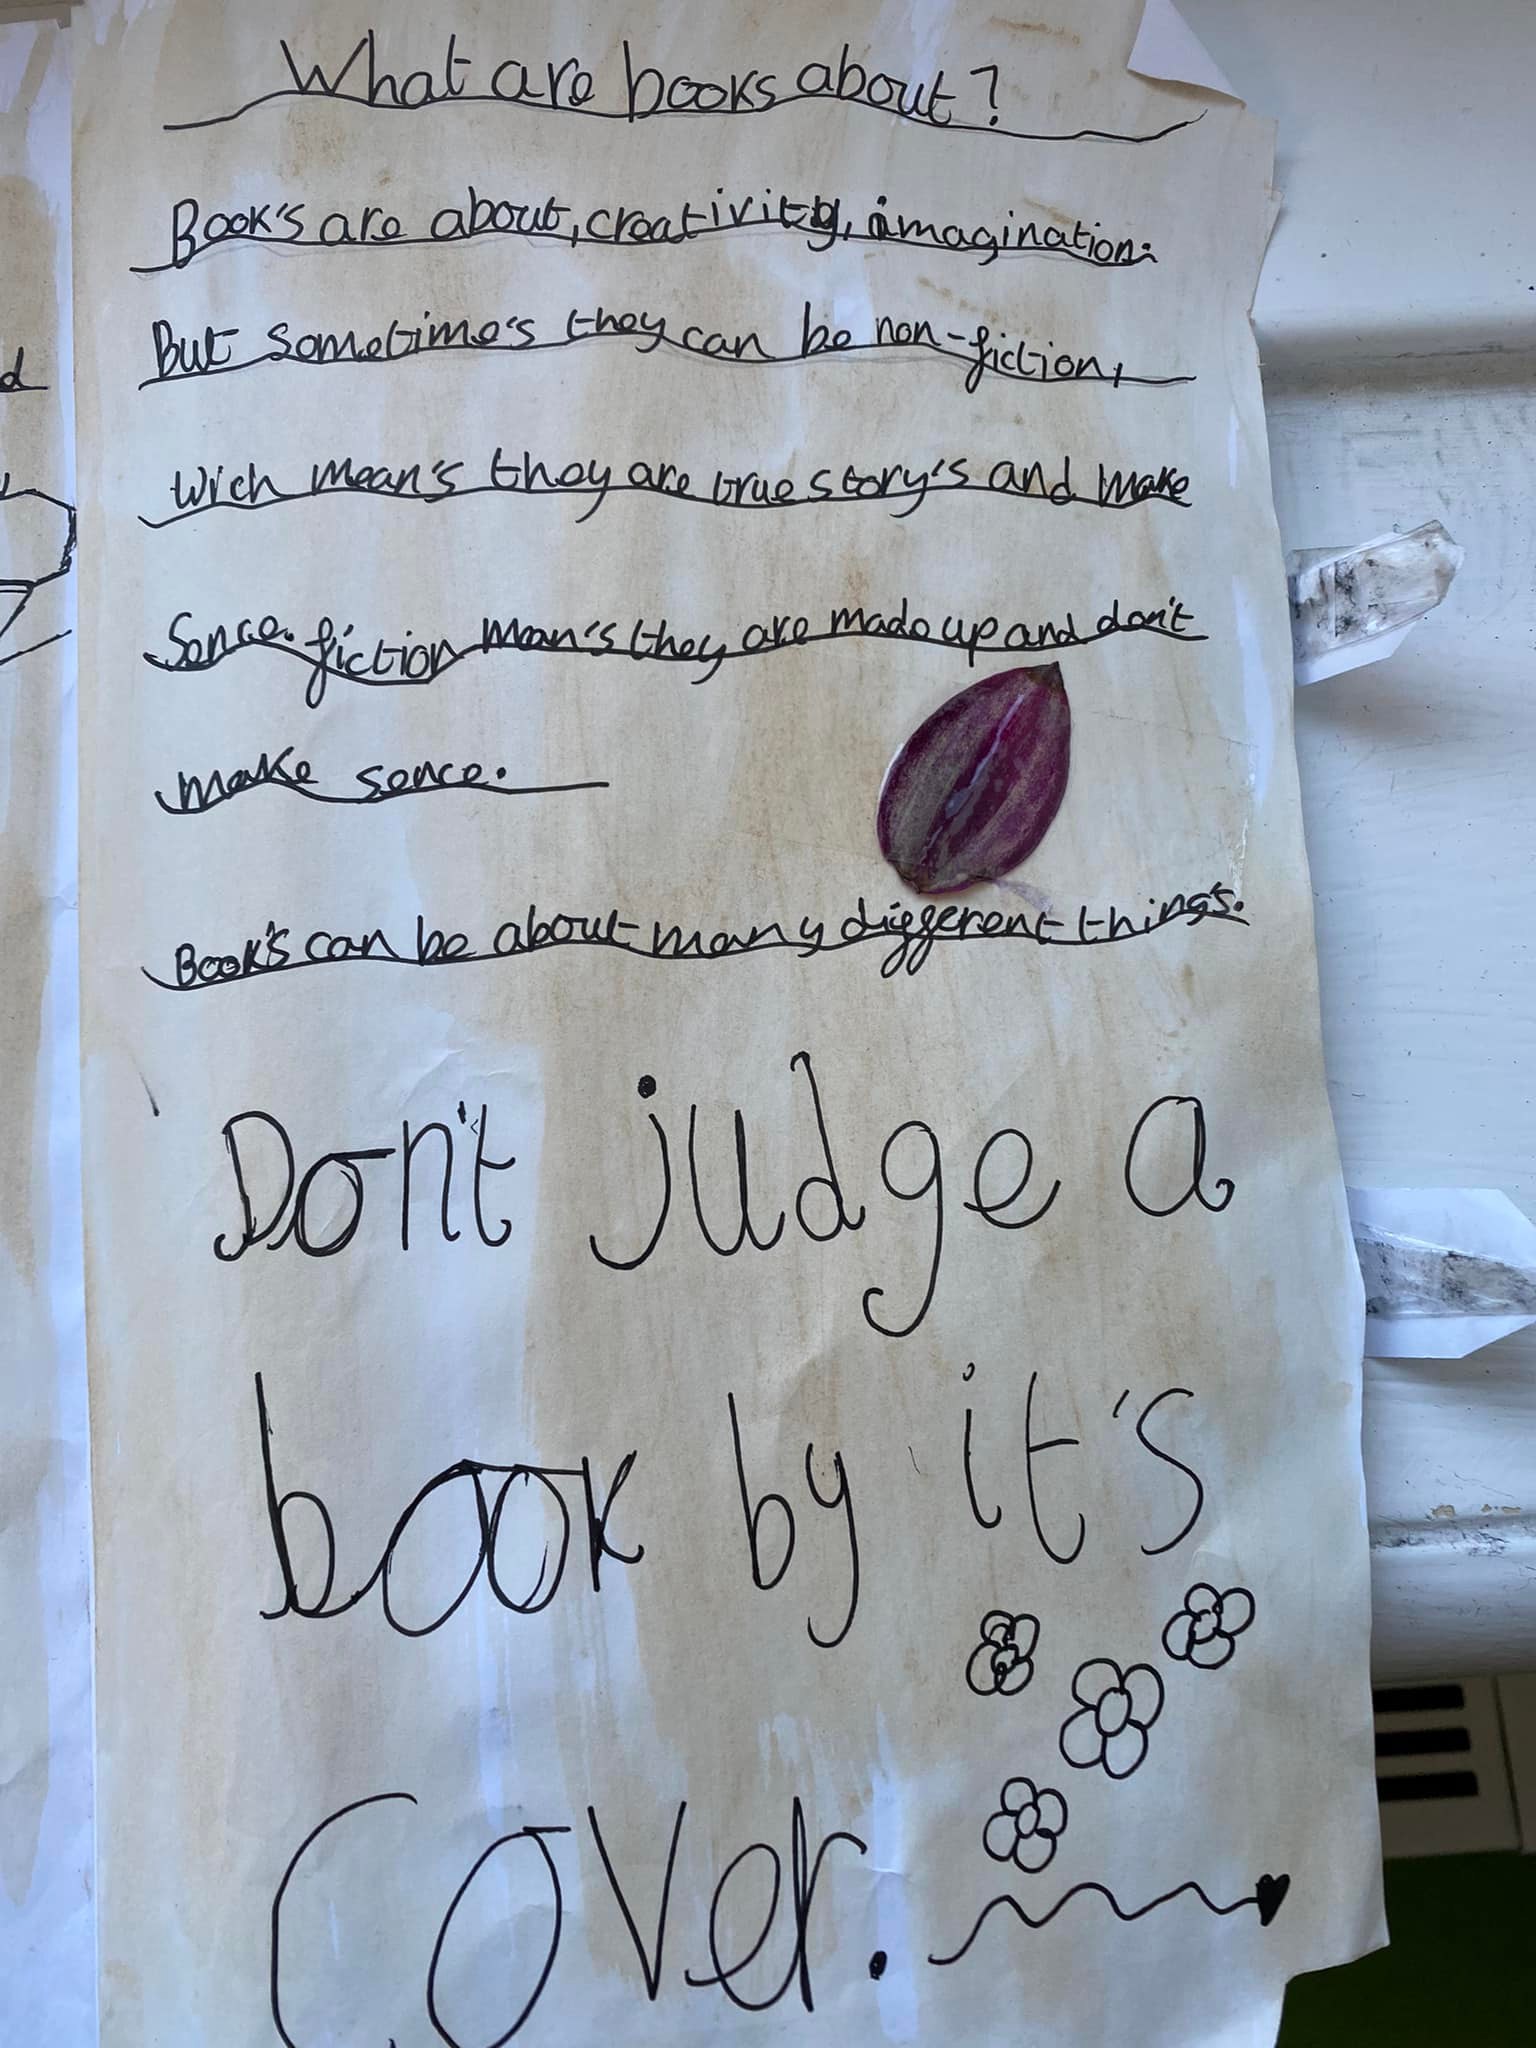 What are books about?
Book's are about, creativity, imagination.
But sometime's they can be non-fiction,
Wich mean's they are true story's and make
Sence. fiction mean's they are made up and don't
make sence.
Book's can be about many different things.
Don't judge a
book by it's
Cover.
d